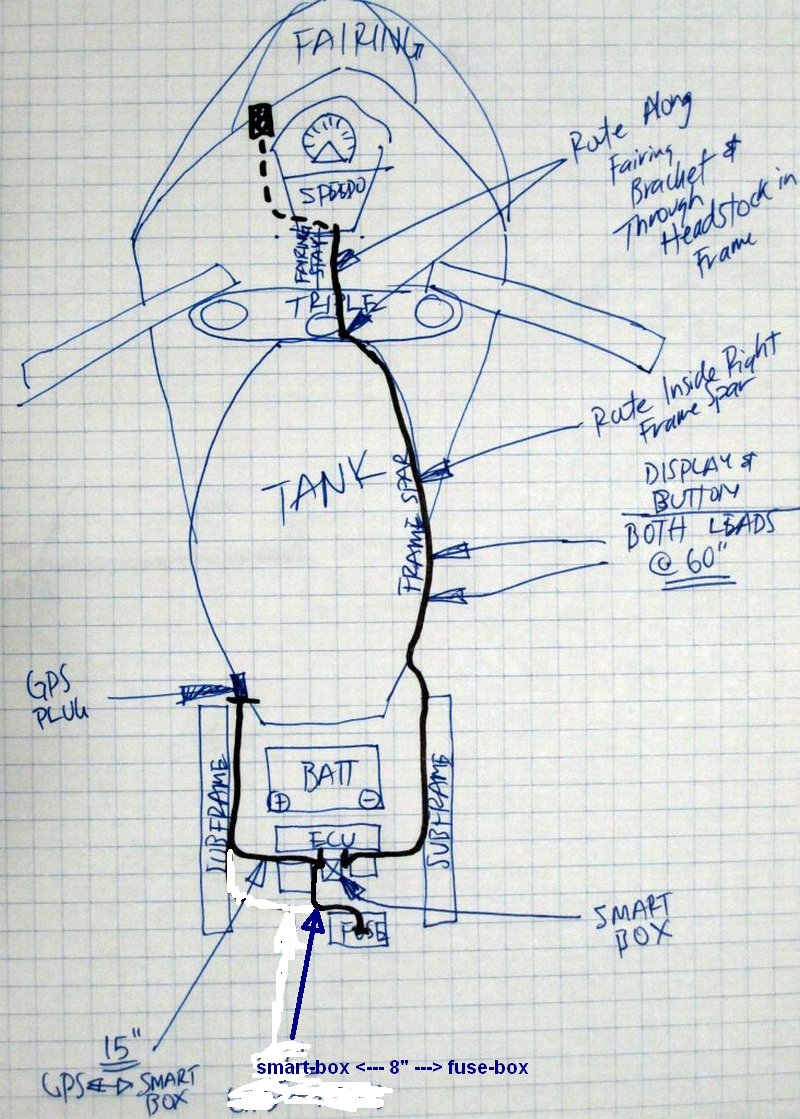 FAIRING
Route Along
Fairing
Bracket &
Through
Headstock in
Frame
SPEEDO
FAIRING
STAY
TRIPLE
Route Inside Right
Frame Spar
TANK
FRAME SPAR
DISPLAY &
BUTTON
BOTH LEADS
@ 60"
GPS
PLUG
BATT
+ -
SUBFRAME
SUBFRAME
ECU
SMART
BOX
FUSE
15"
GPS <-> SMART
BOX
smart-box <--- 8" ---> fuse-box